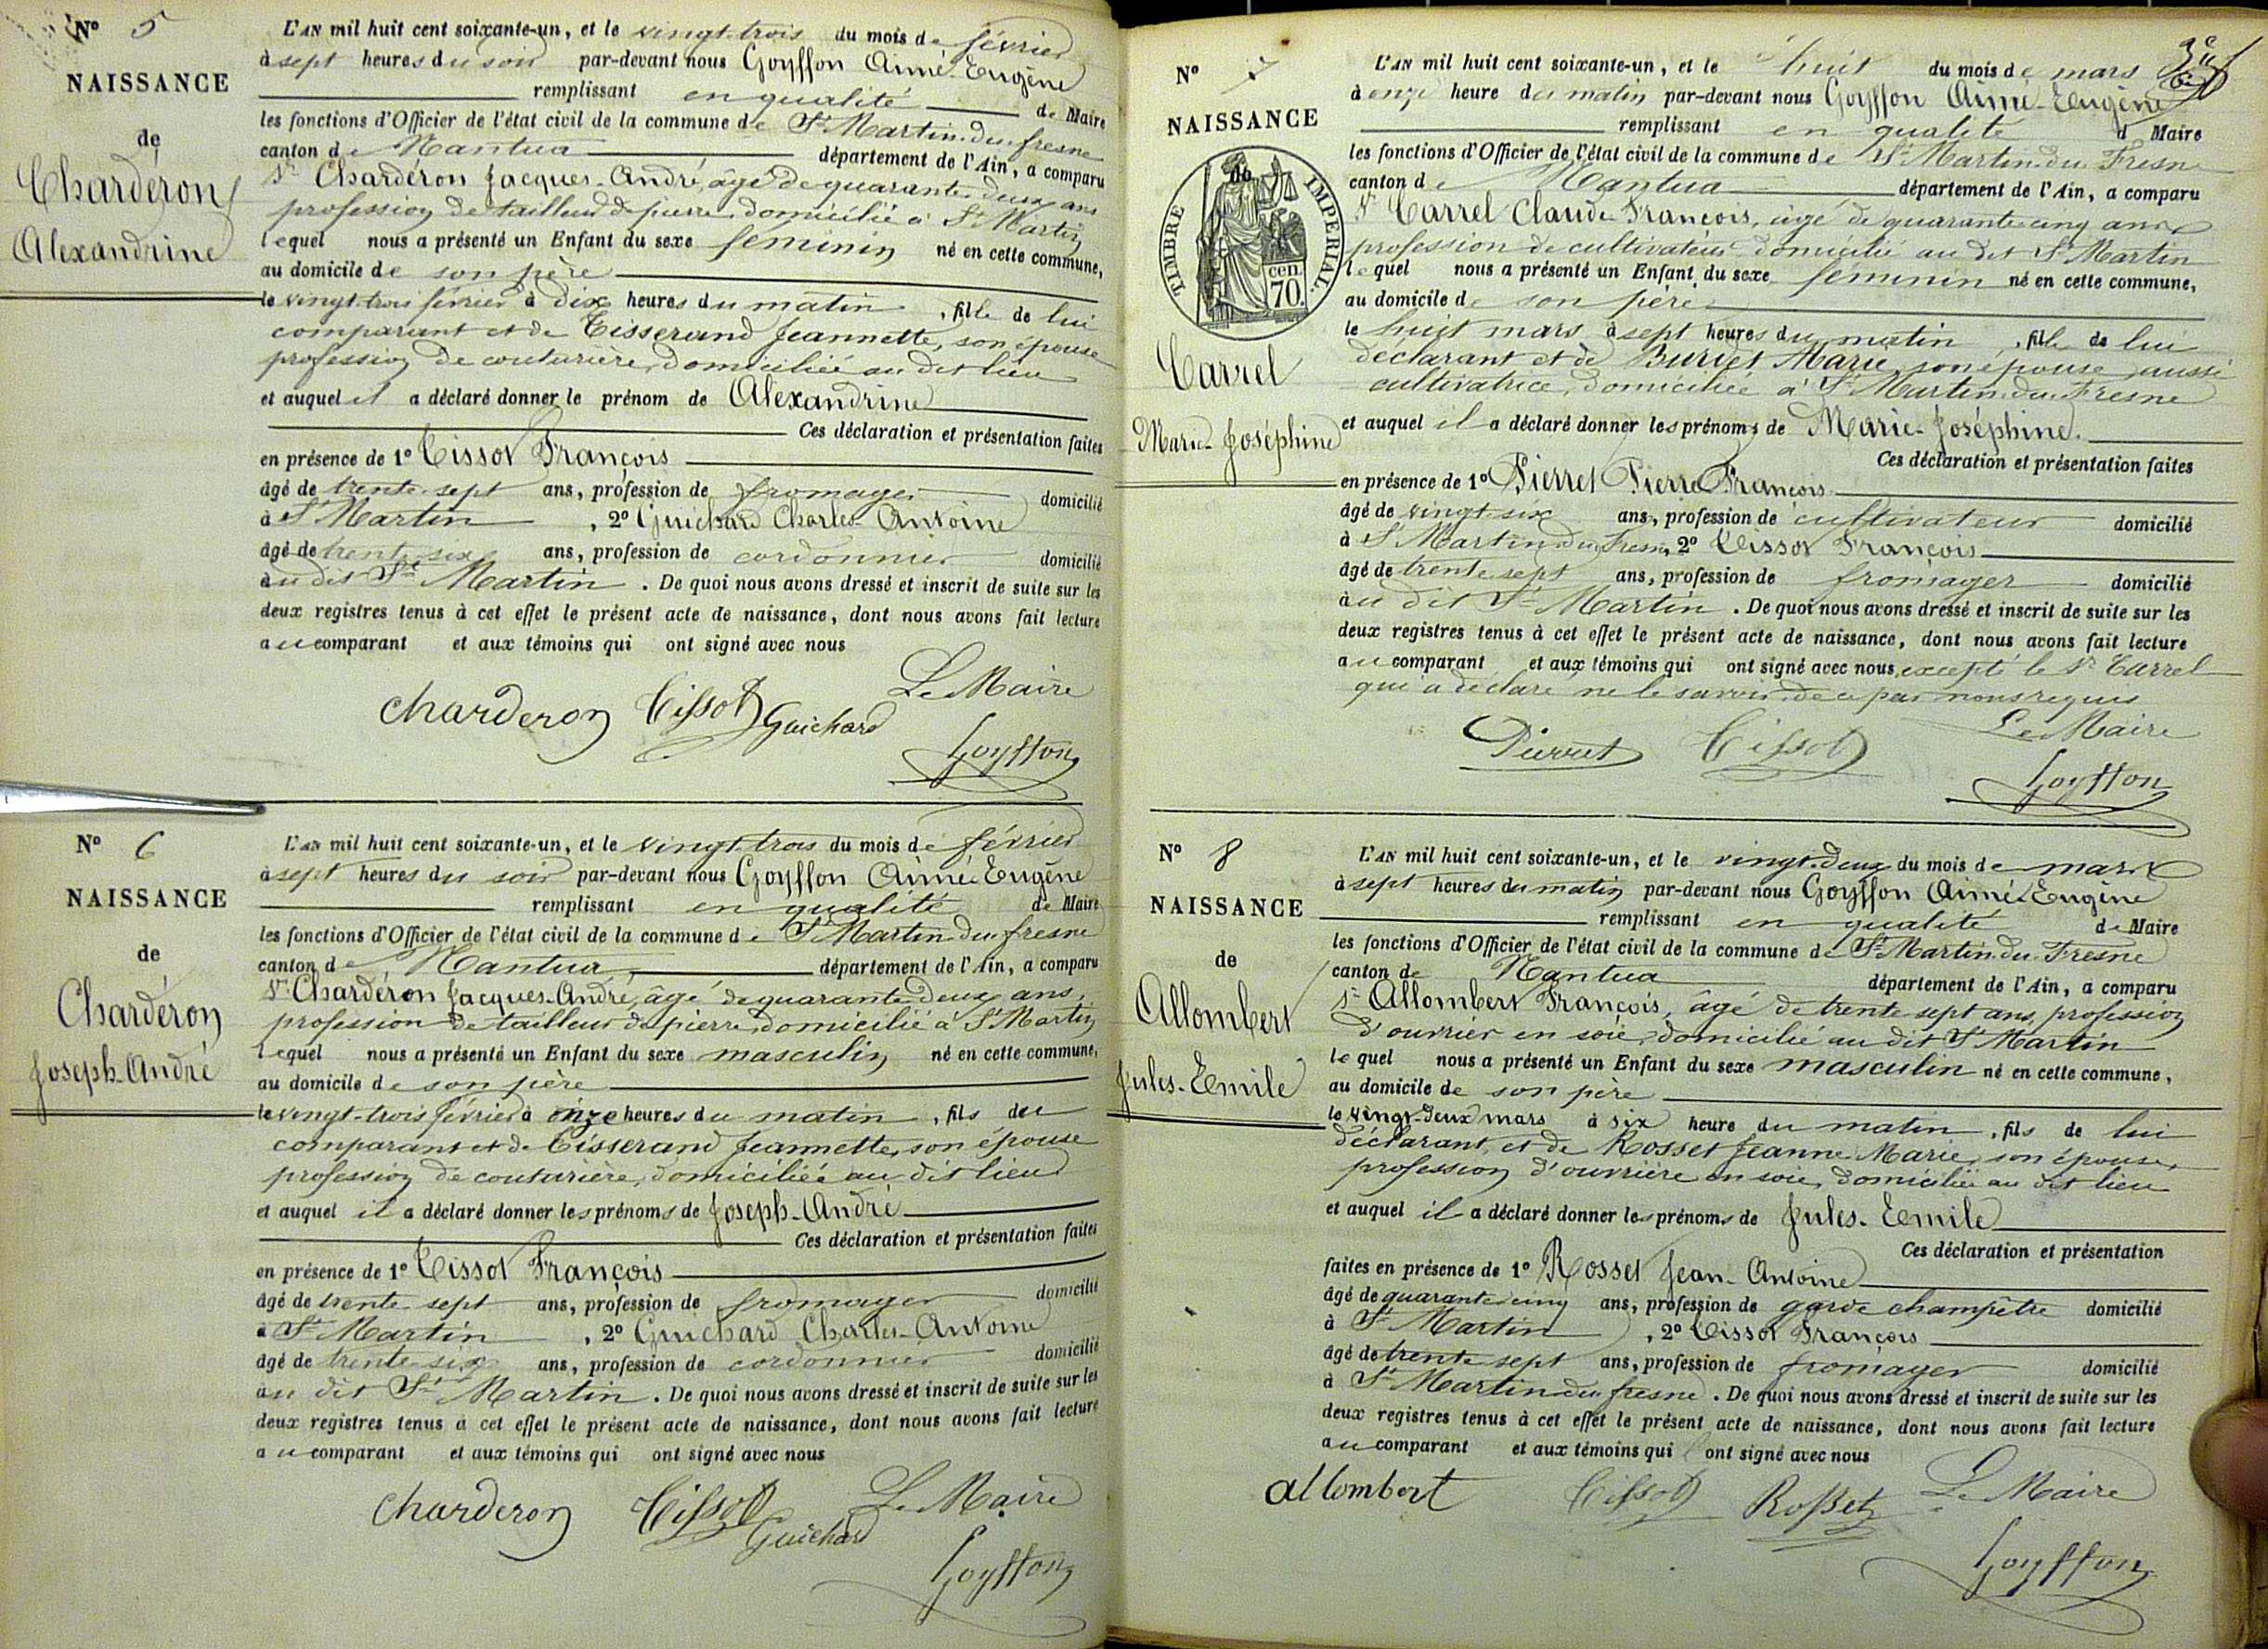 Nº 5
NAISSANCE
de
Chardéron
Alexandrine
L'AN mil huit cent soixante-un, et le vingt-trois du mois de février
à sept heures du soir par-devant nous Goyffon Aimé-Eugène
remplissant en qualité de Maire
les fonctions d'Officier de l'état civil de la commune de St Martin-du-fresne
canton de Nantua département de l'Ain, a comparu
Sr Chardéron Jacques-André, âgé de quarante-deux ans
profession de tailleur de pierre, domicilié à St Martin
lequel nous a présenté un Enfant du sexe féminin né en cette commune,
au domicile de son père
le vingt-trois février à dix heures du matin, fille de lui
comparant et de Tisserand Jeannette, son épouse
profession de couturière, domiciliée au dit lieu
et auquel il a déclaré donner le prénom de Alexandrine
Ces déclaration et présentation faites
en présence de 1º Tissot François
âgé de trente-sept ans, profession de fromager domicilié
à St Martin, 2º Guichard Charles-Antoine
âgé de trente-six ans, profession de cordonnier domicilié
au dit St Martin. De quoi nous avons dressé et inscrit de suite sur les
deux registres tenus à cet effet le présent acte de naissance, dont nous avons fait lecture
au comparant et aux témoins qui ont signé avec nous
Le Maire
Charderon Tissot Guichard
Goyffon
Nº 6
NAISSANCE
de
Chardéron
Joseph-André
L'AN mil huit cent soixante-un, et le vingt-trois du mois de février
à sept heures du soir par-devant nous Goyffon Aimé-Eugène
remplissant en qualité de Maire
les fonctions d'Officier de l'état civil de la commune de St Martin-du-fresne
canton de Nantua département de l'Ain, a comparu
Sr Chardéron Jacques-André, âgé de quarante-deux ans,
profession de tailleur de pierre, domicilié à St Martin
lequel nous a présenté un Enfant du sexe masculin né en cette commune,
au domicile de son père
le vingt-trois février à onze heures du matin, fils du
comparant et de Tisserand Jeannette, son épouse
profession de couturière, domiciliée au dit lieu
et auquel il a déclaré donner les prénoms de Joseph-André
Ces déclaration et présentation faites
en présence de 1º Tissot François
âgé de trente-sept ans, profession de fromager domicilié
à St Martin, 2º Guichard Charles-Antoine
âgé de trente-six ans, profession de cordonnier domicilié
au dit St Martin. De quoi nous avons dressé et inscrit de suite sur les
deux registres tenus à cet effet le présent acte de naissance, dont nous avons fait lecture
au comparant et aux témoins qui ont signé avec nous
Charderon Tissot Le Maire
Guichard
Goyffon
Nº 7
NAISSANCE
de
TIMBRE IMPERIAL.
cen.
70.
Carrel
Marie-Joséphine
L'AN mil huit cent soixante-un, et le huit du mois de mars
à onze heure du matin par-devant nous Goyffon Aimé-Eugène
remplissant en qualité d Maire
les fonctions d'Officier de l'état civil de la commune de St Martin-du-Fresne
canton de Nantua département de l'Ain, a comparu
Sr Carrel Claude-François, âgé de quarante-cinq ans
profession de cultivateur domicilié au dit St Martin
lequel nous a présenté un Enfant du sexe féminin né en cette commune,
au domicile de son père
le huit mars à sept heures du matin, fille de lui
déclarant et de Burlet Marie, son épouse, aussi
cultivatrice, domiciliée à St Martin-du-Fresne
et auquel il a déclaré donner les prénoms de Marie-Joséphine.
Ces déclaration et présentation faites
en présence de 1º Pierret Pierre-François
âgé de vingt-six ans, profession de cultivateur domicilié
à St Martin-du-fresne, 2º Tissot François
âgé de trente-sept ans, profession de fromager domicilié
au dit St Martin. De quoi nous avons dressé et inscrit de suite sur les
deux registres tenus à cet effet le présent acte de naissance, dont nous avons fait lecture
au comparant et aux témoins qui ont signé avec nous, excepté le Sr Carrel
qui a déclaré ne le savoir, de ce par nous requis
Pierret Tissot Le Maire
Goyffon
Nº 8
NAISSANCE
de
Allombert
Jules-Emile
L'AN mil huit cent soixante-un, et le vingt-deux du mois de mars
à sept heures du matin par-devant nous Goyffon Aimé-Eugène
remplissant en qualité de Maire
les fonctions d'Officier de l'état civil de la commune de St Martin-du-Fresne
canton de Nantua département de l'Ain, a comparu
Sr Allombert François, âgé de trente-sept ans, profession
d'ouvrier en soie, domicilié au dit St Martin
le quel nous a présenté un Enfant du sexe masculin né en cette commune,
au domicile de son père
le vingt-deux mars à six heure du matin, fils de lui
déclarant, et de Rosset Jeanne-Marie, son épouse,
profession d'ouvrière en soie, domiciliée au dit lieu
et auquel il a déclaré donner les prénoms de Jules-Emile
Ces déclaration et présentation
faites en présence de 1º Rosset Jean-Antoine
âgé de quarante-cinq ans, profession de garde champêtre domicilié
à St Martin, 2º Tissot François
âgé de trente-sept ans, profession de fromager domicilié
à St Martin-du-fresne. De quoi nous avons dressé et inscrit de suite sur les
deux registres tenus à cet effet le présent acte de naissance, dont nous avons fait lecture
au comparant et aux témoins qui ont signé avec nous
allombert Tissot Rosset Le Maire
Goyffon